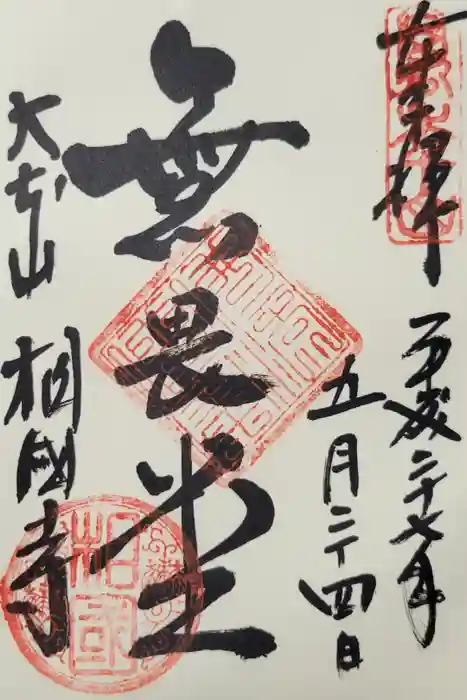 奉拝
平成二十七年
五月二十四日
無畏堂
大本山
相國寺
相國